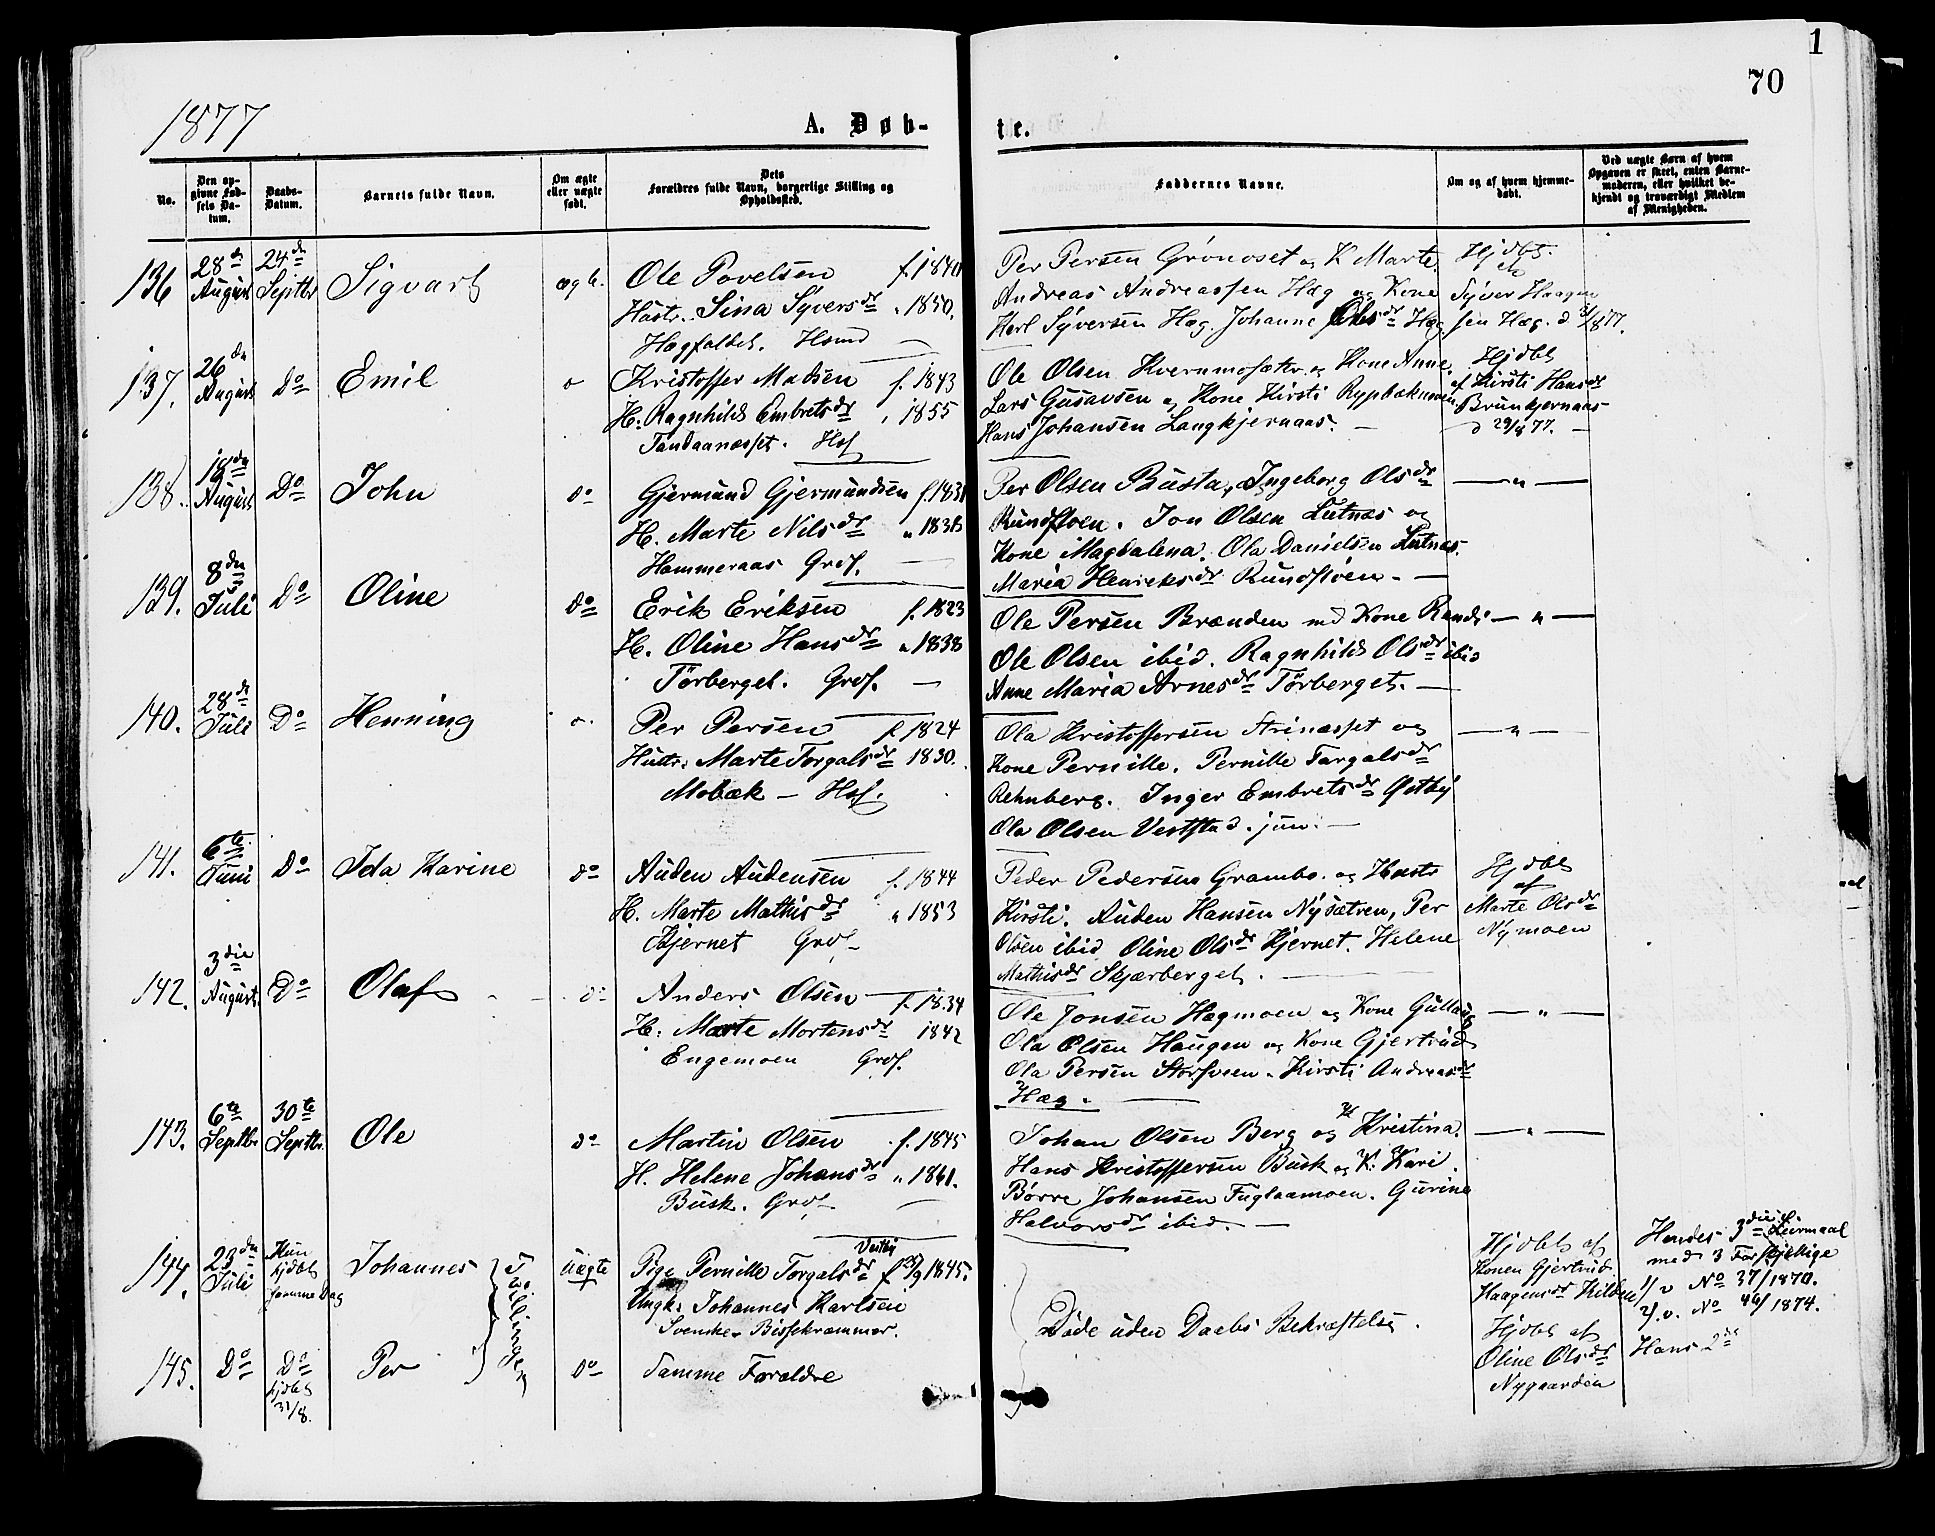 1
70
1877
A. Døb-
te.
No.
Den op-
givne Fød-
sels Da-
tum.
Daabs-
Datum.
Barnets fulde Navn.
Om ægte
eller uægte
født.
Dets
Forældres fulde Navn, borgerlige Stilling og
Opholdssted.
Faddernes Navne.
Om og af hvem hjemme-
døbt.
Ved uægte Børn af hvem
Opgaven er skeet, enten Barne-
moderen, eller hvilket be-
kjendt og troværdigt Medlem
af Menigheden.
136 28de August 24de Septbr Sigvart ægte
Ole Povelsen f. 1840
Hustr. Sina Syversdr " 1850.
Hægfaldet. Hsmd
Per Persen Grønoset og K Marte.
Andreas Andreassen Hæg og Kone
Karl Syversen Hæg. Johanne Olsdr Hæg
Hjdbt.
Syver Haagen
sen Hæg. d /877.
137. 26de August Do Emil
Kristoffer Madsen f. 1843
H. Ragnhild Embretsdr " 1855
Tandaanæsset. Hsf
Ole Olsen Kvernmosætr. og Kone Anne.
Lars Gusavsen og Kone Kirsti Rypbakmoen
Hans Johansen Langkjernaas.
Hjdbt
af Kirsti Hansdr
Brunkjernaas
d 29/8 77.
138. 18de August Do John do
Gjermund Gjermundsen f. 1831
H. Marte Nilsdr " 1836
Hammeraas Grdf.
Per Olsen Busta, Ingeborg Olsdr
Rundfloen. Jon Olsen Lutnæs og
Kone Magdalena. Ola Danielsen Lutnæs.
Maria Henriksdr Rundfloen.
— " —
139. 8de Juli Do Oline do
Erik Eriksen f. 1823
H. Oline Hansdr " 1838
Tørberget. Grdf.
Ole Persen Brænden med Kone Randi
Ole Olsen ibid. Ragnhild Olsdr ibid
Anne Maria Arnesdr Tørberget.
— " —
140. 28de Juli Do Henning
Per Persen f. 1824
Hustr. Marte Torgalsdr 1830.
Mobæk — Hsf.
Ola Kristoffersen Strinæsset og
Kone Pernille. Pernille Targalsdr
Rehnberg. Inger Embretsdr Østby
Ola Olsen Veststad. jun.
— " —
141. 6te Juni Do Ida Karine do
Auden Audensen f. 1844
H. Marte Mathisdr " 1853
Kjernet Grdf
Peder Pedersen Grambo. og Hustr
Kirsti. Auden Hansen Nysætren, Per
Olsen ibid Oline Olsdr Kjernet. Helene
Mathisdr Skjærberget.
Hjdbt
af
Marte Olsdr
Nymoen
142. 3die August. Do Olaf do
Anders Olsen f. 1834
H. Marte Mortensdr 1842
Engemoen Grdf.
Ole Jonsen Hægmoen og Kone Gullaug
Ola Olsen Haugen og Kone Gjertrud
Ola Persen Storsveen. Kirsti Andreasdr
Hæg.
— " —
143. 6te Septbr 30te Septbr. Ole do
Martin Olsen f. 1845
H. Helene Johansdr " 1841.
Busk. Grdf
Johan Olsen Berg og K Kristina.
Hans Kristoffersen Busk og K. Kari.
Børre Johansen Fuglaamoen. Gurine
Halvorsdr ibid.
— " —
144. 23de Juli Kun hjdbt samme Dag Johannes Tvillinger uægte
Pige Pernille Torgalsdr Vestby f 1845.
Ungk. Johannes Karlsen
Svenske Bissekræmmer.
Døde uden Daabs Bekræftelse.
Hjdbt af
Konen Gjertrud
Haagensdr Kilden
Hendes 3die Leirmaal
med 3 Forskjellige
1/ v No 37/1870.
2/ v. No 46/1874.
145. Do Do hjdbt 31/8. Per do
Samme Forældre
Hjdbt af
Oline Olsdr
Nygaarden
Hans 2det